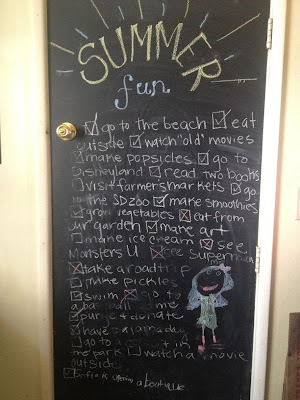 SUMMER
fun
go to the beach eat
outside watch "old" movies
make popsicles go to
Disneyland read two books
visit farmers markets go
to the SD zoo make smoothies
grow vegetables eat from
our garden make art
make ice cream see
Monsters U see Superman
take a road trip
make pickles
swim go to
a baseball
purge & donate
have pajama day
go to a in
the park watch a movie
outside
a boutique